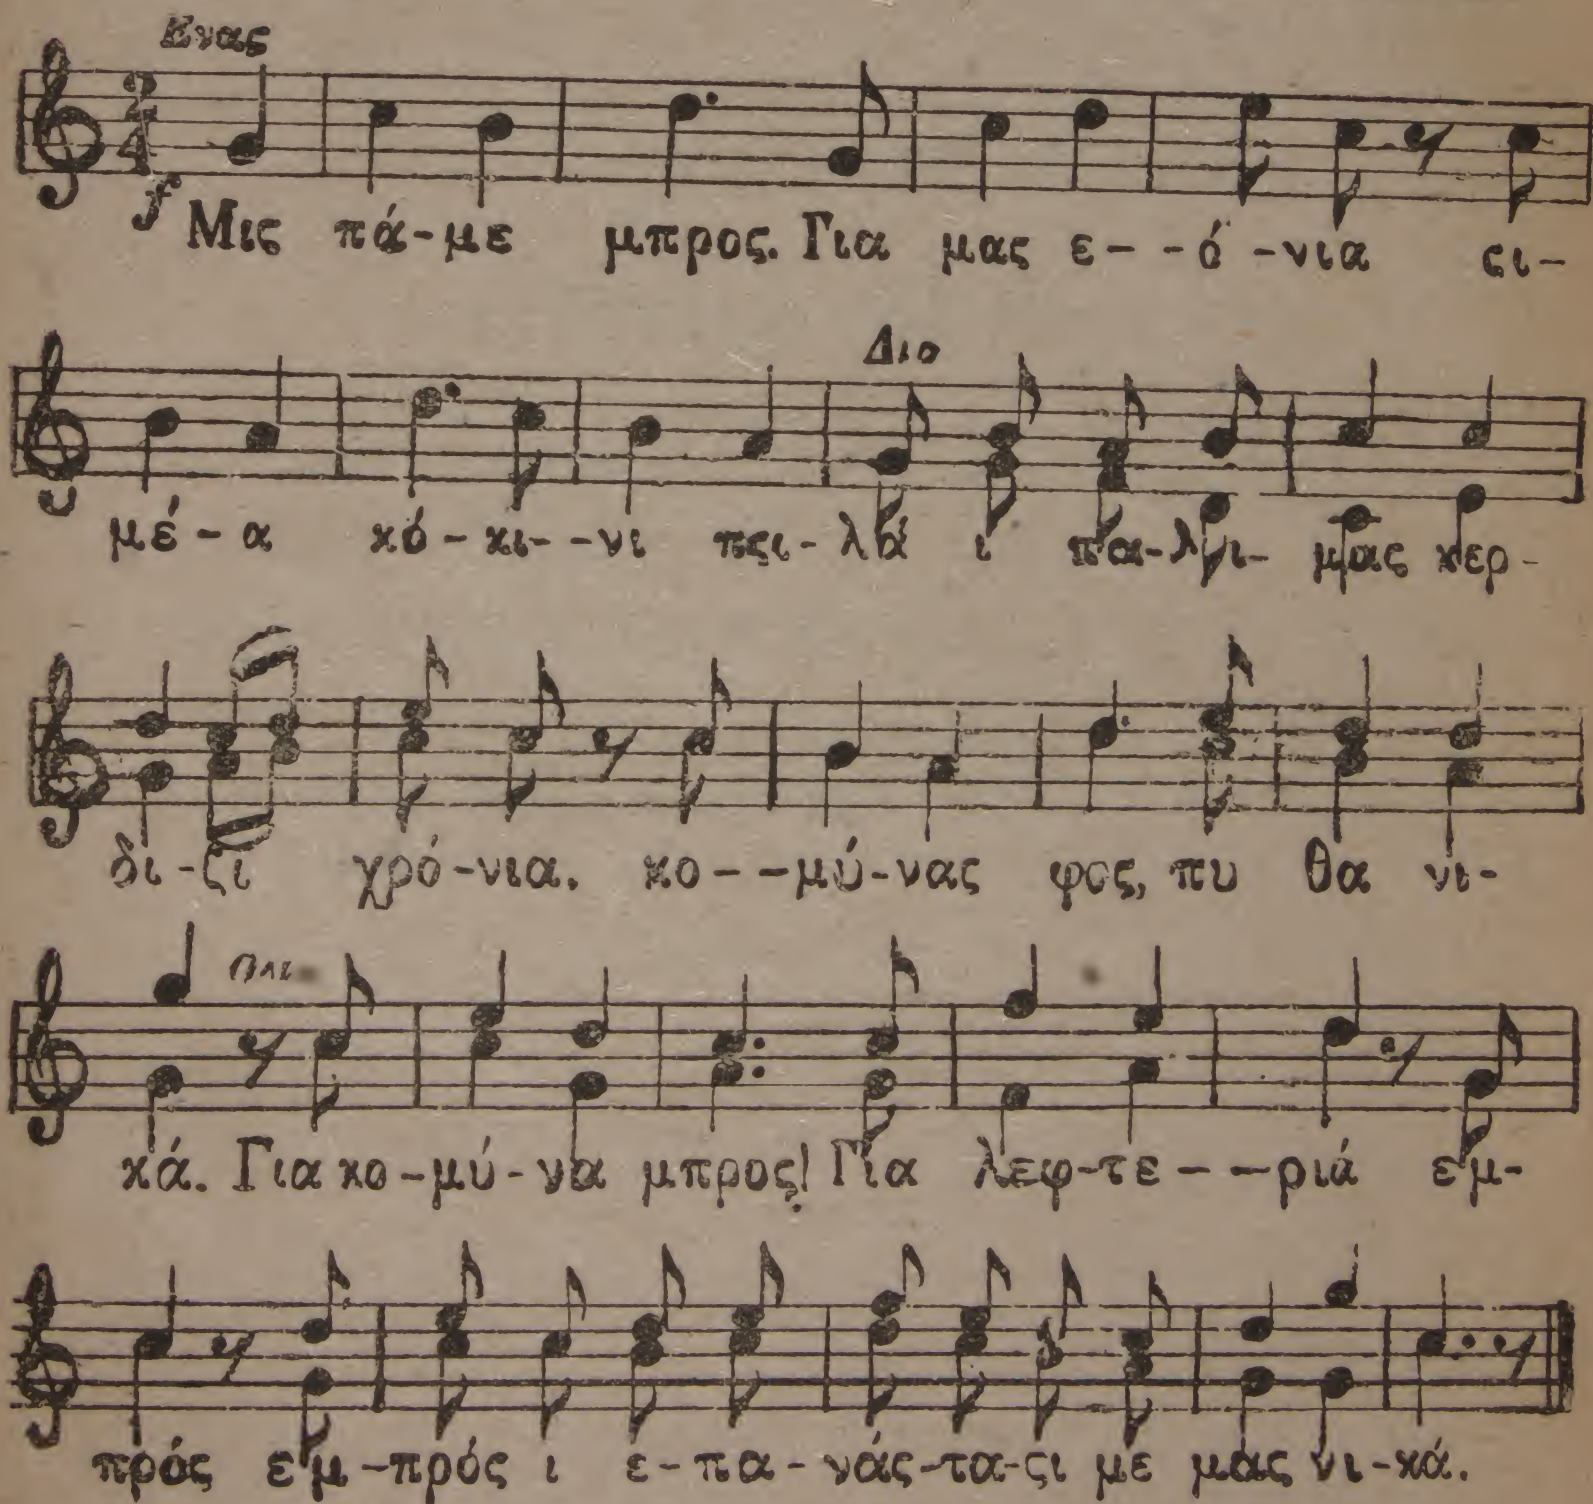 Ενας
2 4
f Μις πά-με μπρος. Για μας ε--ό-νια ςι-
Διο
μέ-α κό-κι--νι πςι-λά ι πα-λι- μας κερ-
δι-ζι χρό-νια. κο--μύ-νας φος, πυ θα νι-
Ολι
κά. Για κο-μύ-να μπρος! Για λεφ-τε--ριά εμ-
πρός εμ-πρός ι ε-πα-νάς-τα-ςι με μας νι-κά.